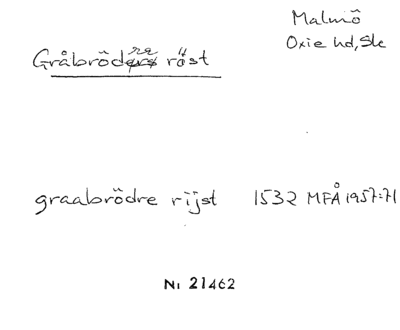 Malmö
Oxie hd, Sk
Gråbrödre röst
graabrödre rijst 1532 MFÅ 1957:71
Ni 21462